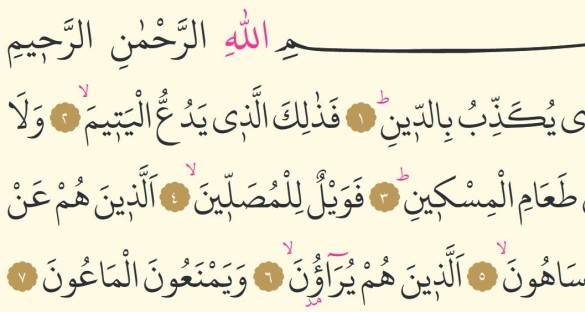 ـمِ اللهِ الرَّحْمٰنِ الرَّحٖيمِ
ى يُكَذِّبُ بِالدّٖينِؕ ﴿١﴾ فَذٰلِكَ الَّذٖى يَدُعُّ الْيَتٖيمَۙ ﴿٢﴾ وَلَا
طَعَامِ الْمِسْكٖينِؕ ﴿٣﴾ فَوَيْلٌ لِلْمُصَلّٖينَۙ ﴿٤﴾ اَلَّذٖينَ هُمْ عَنْ
سَاهُونَۙ ﴿٥﴾ اَلَّذٖينَ هُمْ يُرَٓاؤُ۫نَۙ ﴿٦﴾ وَيَمْنَعُونَ الْمَاعُونَ ﴿٧﴾